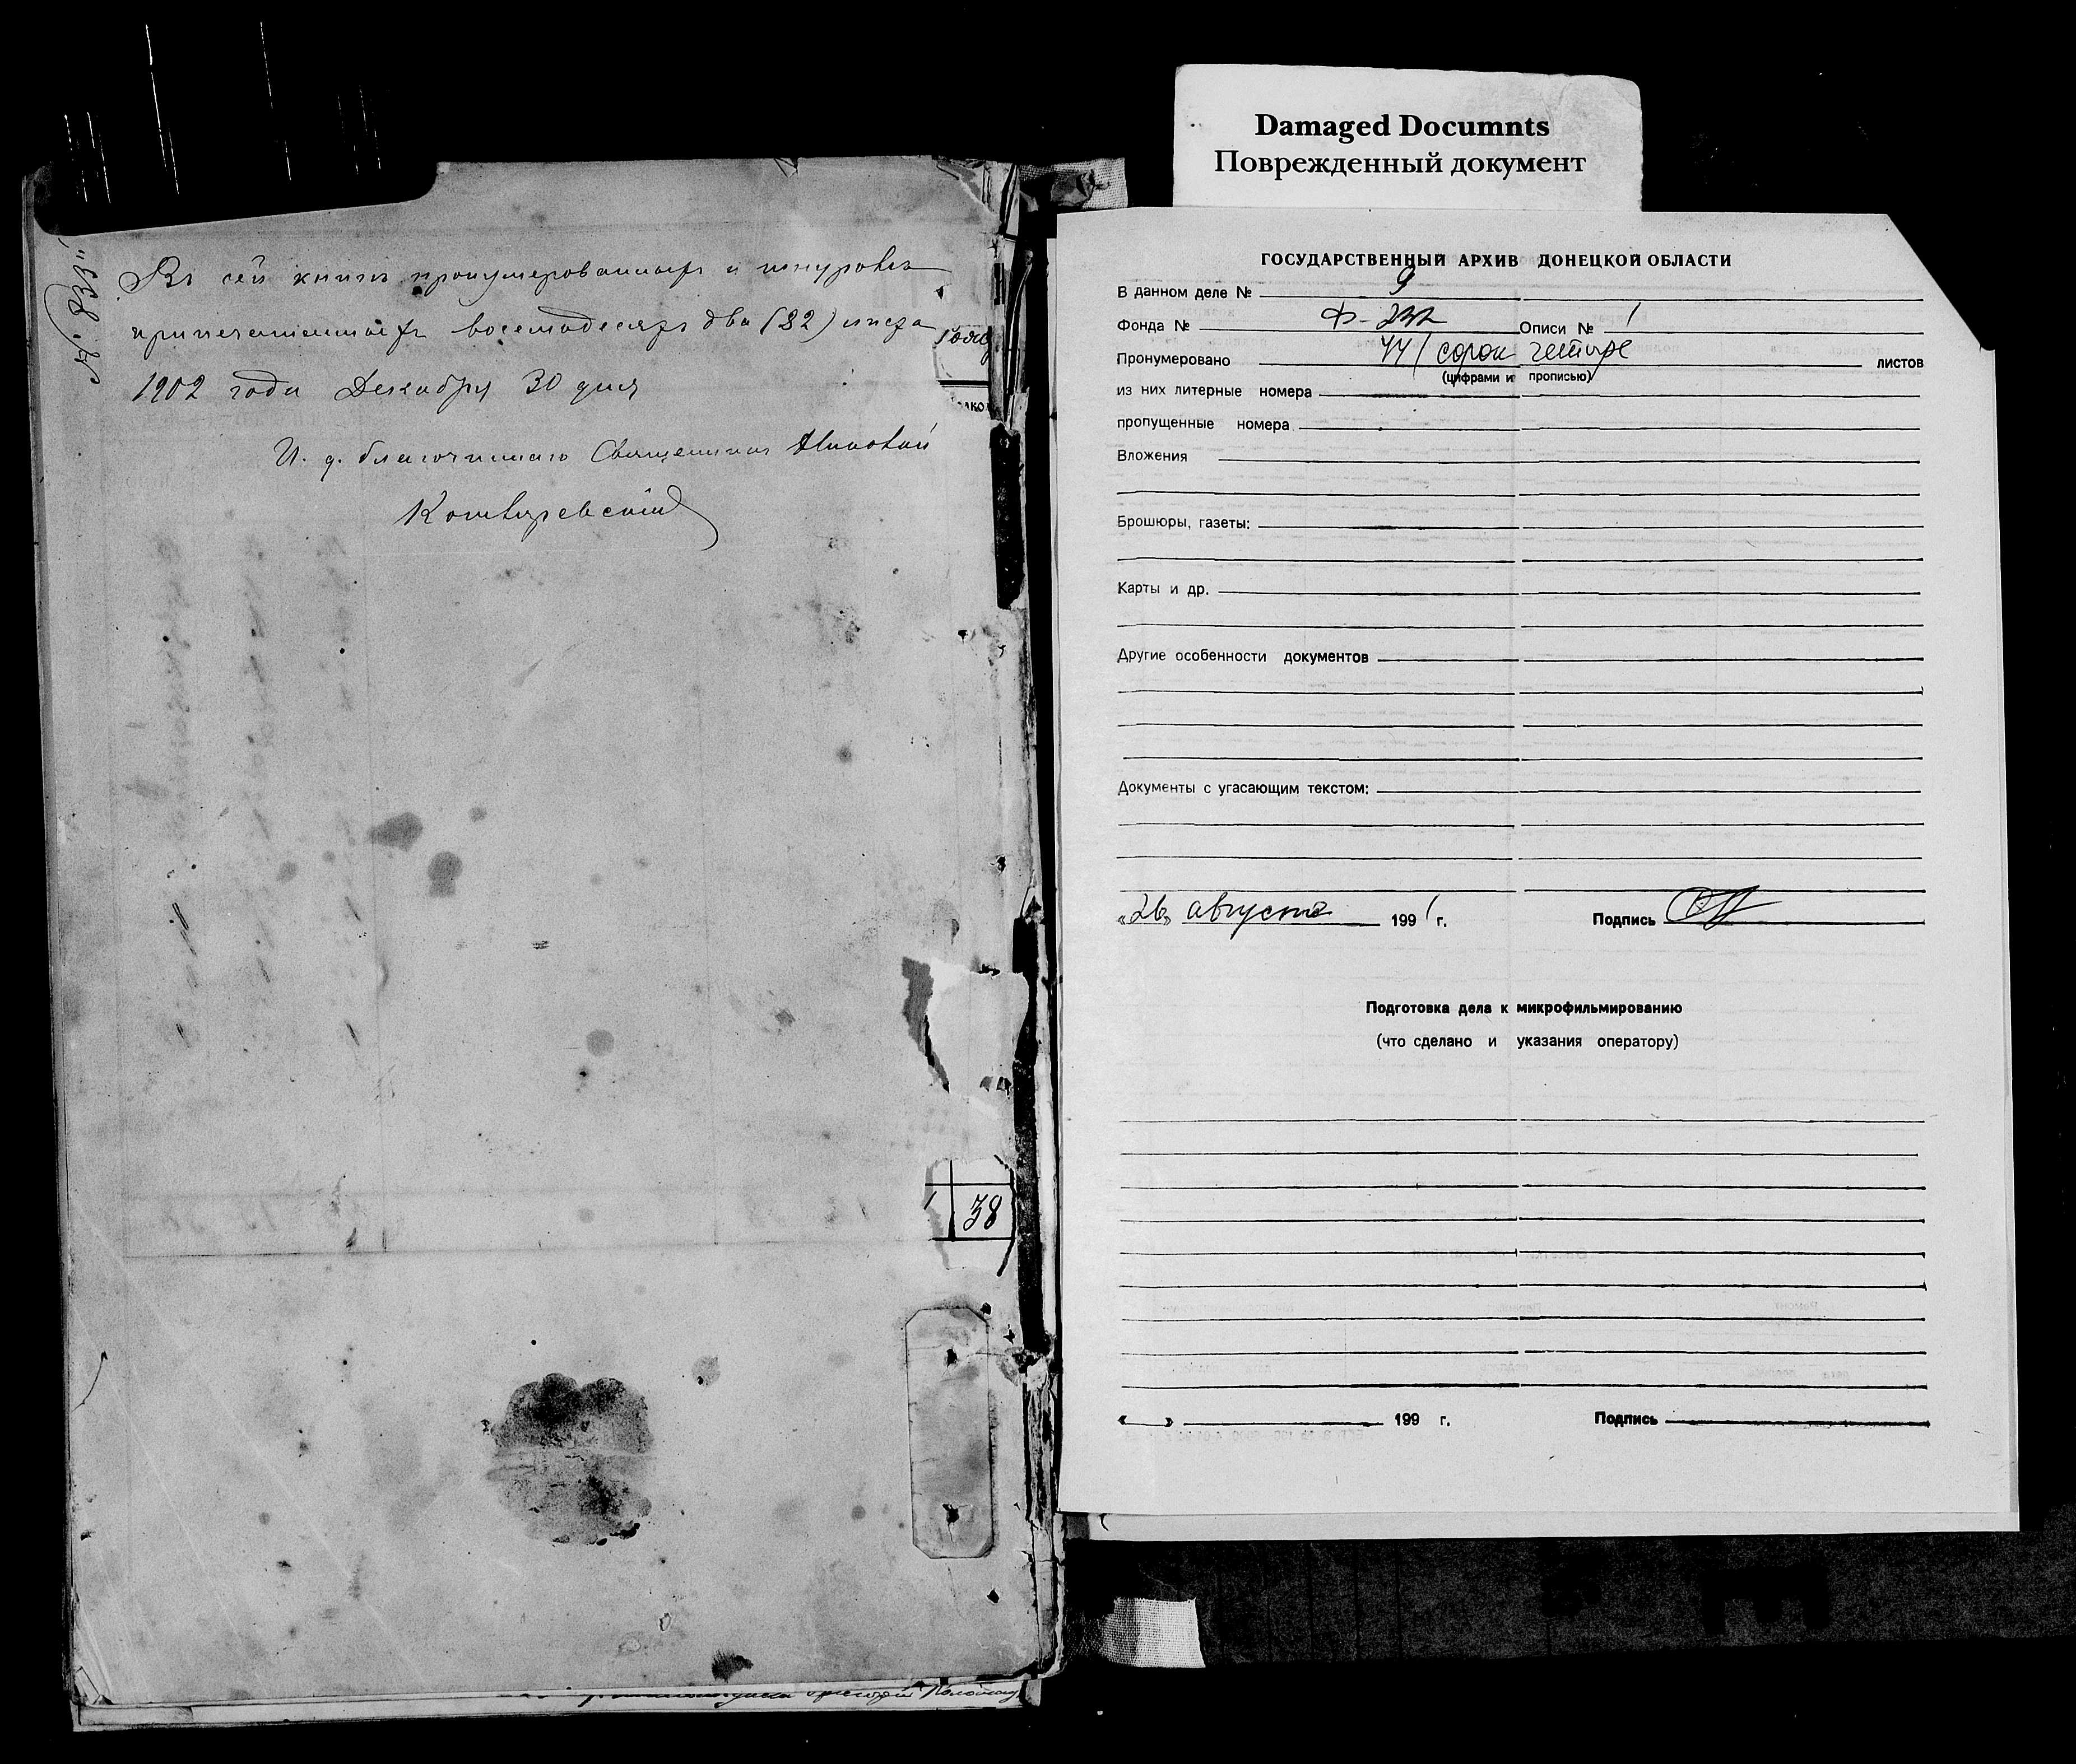 Въ сей книгѣ пронумерованныхъ и шнуровъ
припечатанныхъ восемьдесятъ два (82) листа
1902 года Декабря 30 дня
И. д. благочиннаго Священникъ
Котляревскій
38
Damaged Documnts
Поврежденный документ
ГОСУДАРСТВЕННЫЙ АРХИВ ДОНЕЦКОЙ ОБЛАСТИ
В данном деле № 9
Фонда № Ф-232 Описи № 1
Пронумеровано 44/ сорок четыре листов
(цифрами и прописью)
из них литерные номера
пропущенные номера
Вложения
Брошюры, газеты:
Карты и др.
Другие особенности документов
Документы с угасающим текстом:
«26» августа 1991 г. Подпись
Подготовка дела к микрофильмированию
(что сделано и указания оператору)
« » 199 г. Подпись